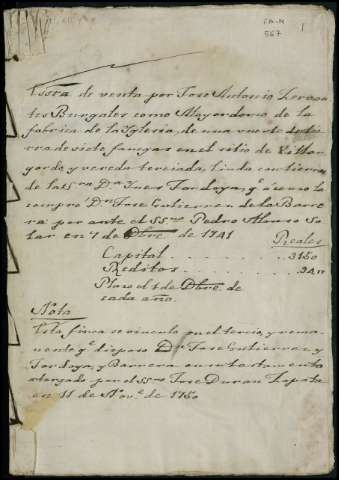 FA-M
567
1
Escra. de venta por Jose Antonio
Burgales como Mayordomo de la
fabrica de la Yglesia, de una suerte de tier
ra de siete fanegas en el sitio de
gordo, y vereda terciada, linda con tierras
de la Sra. Da. Ynes Tordoya, qe.
compro Dn. Jose Gutierrez de la Barre
ra por ante el SSno. Pedro Alonso So
lar en 7 de Dbre. de 1741
Reales
Capital . . . . . 3150
Reditos . . . . . 94 "
Plazo el 1 de Dbre. de
cada año.
Nota
Esta finca se vinculo en el tercio, y rema
nente qe. dispuso Dn. Jose Gutierrez y
Tordoya, y Barrera en su testamento
otorgado por el SSno. Jose Duran Zapata
en 11 de Nove. de 1750